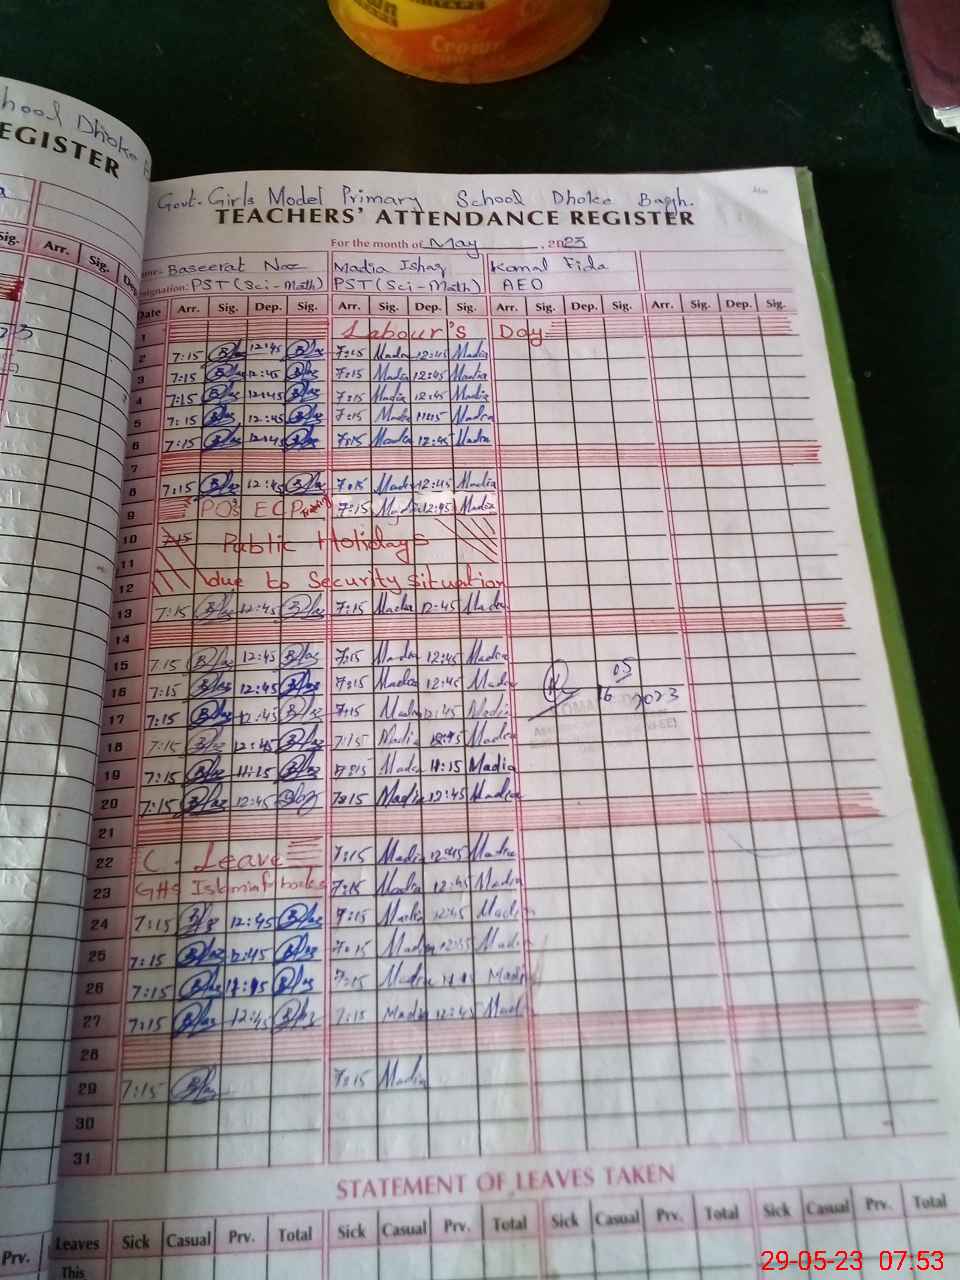 Crown
hool Dhoke B
EGISTER
Sig. Arr. Sig. Dep.
Govt. Girls Model Primary School Dhoke Bagh.
TEACHERS' ATTENDANCE REGISTER
For the month of May, 2023
Baseerat Madia Ishaq Komal Fida
signation: PST (Sci-Math) PST (Sci-Math) AEO
Date Arr. Sig. Dep. Sig. Arr. Sig. Dep. Sig. Arr. Sig. Dep. Sig. Arr. Sig. Dep. Sig.
1 Labour's Day
2 7:15 12:45 7:15 Madia 12:45 Madia
3 7:15 12:45 7:15 Madia 12:45 Madia
4 7:15 12:45 7:15 Madia 12:45 Madia
5 7:15 12:45 7:15 Madia 11:15 Madia
6 7:15 12:45 7:15 Madia 12:45 Madia
7
8 7:15 12:45 7:15 Madia 12:45 Madia
9 ECP 7:15 Madia 12:45 Madia
10 7:15 Public Holidays
11
12 due to Security situation
13 7:15 12:45 7:15 Madia 12:45 Madia
14
15 7:15 12:45 7:15 Madia 12:45 Madia
16 7:15 12:45 7:15 Madia 12:45 Madia 16 05 2023
17 7:15 12:45 7:15 Madia 12:45 Madia
18 7:15 12:45 7:15 Madia 12:45 Madia
19 7:15 11:15 7:15 Madia 11:15 Madia
20 7:15 12:45 7:15 Madia 12:45 Madia
21
22 C. Leave 7:15 Madia 12:45 Madia
23 GHS 7:15 Madia 12:45 Madia
24 7:15 12:45 7:15 Madia 12:45 Madia
25 7:15 12:45 7:15 Madia Madia
26 7:15 7:15 Madia Madia
27 7:15 12:45 7:15 Madia 12:45 Madia
28
29 7:15 7:15 Madia
30
31
STATEMENT OF LEAVES TAKEN
Prv. Leaves Sick Casual Prv. Total Sick Casual Prv. Total Sick Casual Prv. Total Sick Casual Prv. Total
This
29-05-23 07:53